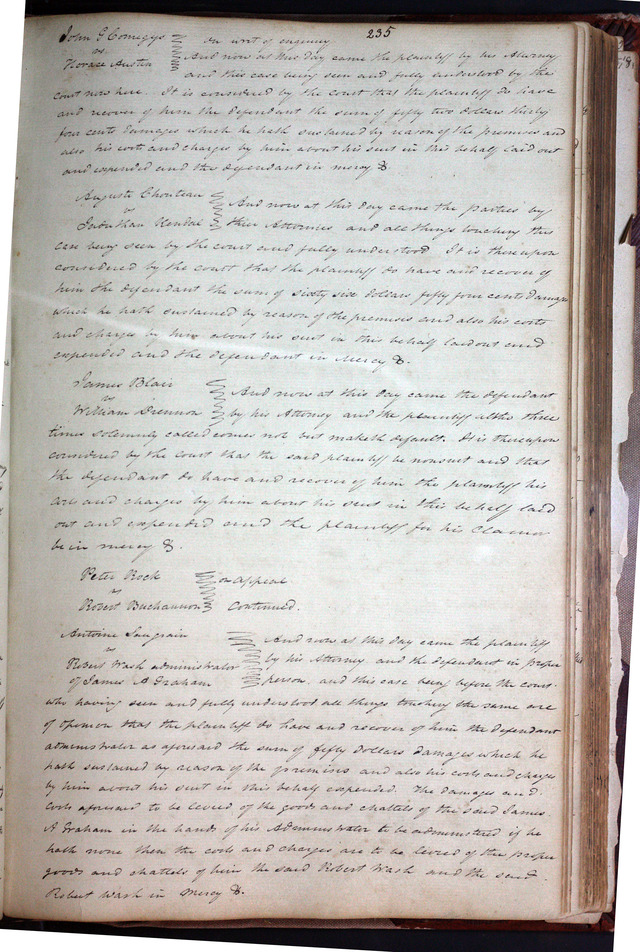 235
John G Comegys } On writ of enquiry
vs
Horace Austin } And now at this day came the plaintiff by his Attorney
and this case being seen and fully understood by the
court now here. It is considered by the court that the plaintiff do have
and recover of him the defendant the sum of fifty two dollars thirty
four cents damages which he hath sustained by reason of the premises and
also his costs and charges by him about his suit in this behalf laid out
and expended and the defendant in mercy &.
Auguste Chouteau } And now at this day came the parties by
vs
Jonathan Kendal } their Attornies and all things touching this
case being seen by the court and fully understood It is thereupon
considered by the court that the plaintiff do have and recover of
him the defendant the sum of sixty six dollars fifty four cents damages
which he hath sustained by reason of the premises and also his costs
and charges by him about his suit in this behalf laid out and
expended and the defendant in Mercy &.
James Blair } And now at this day came the defendant
vs
William Drennon } by his Attorney and the plaintiff altho three
times solemnly called comes not but maketh default. It is thereupon
considered by the court that the said plaintiff be nonsuit and that
the defendant do have and recover of him the plaintiff his
costs and charges by him about his suit in this behalf laid
out and expended and the plaintiff for his Clamor
be in mercy &.
Peter Rock } on appeal
vs
Robert Buchannon } Continued.
Antoine Saugrain } And now at this day came the plaintiff
vs
Robert Wash administrator } by his Attorney and the defendant in proper
of James A Graham } person, and this case being before the court
who having seen and fully understood all things touching the same are
of opinion that the plaintiff do have and recover of him the defendant
administrator as aforesaid the sum of fifty dollars damages which he
hath sustained by reason of the premises and also his costs and charges
by him about his suit in this behalf expended. The damages and
costs aforesaid to be levied of the goods and chattels of the said James
A Graham in the hands of his Administrator to be administered if he
hath none then the costs and charges are to be levied of the proper
goods and chattels of him the said Robert Wash and the said
Robert Wash in Mercy &.